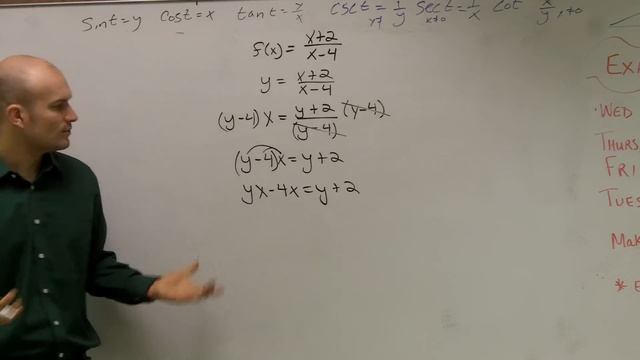 sint=y cost=x tant=y/x csct=1/y sect=1/x cot x/y, ≠0
y≠ x≠0
f(x) = (x+2)/(x-4)
y = (x+2)/(x-4)
(y-4) x = (y+2)/(y-4) (y-4)
(y-4)x = y+2
yx-4x=y+2
Exa
WED
THURS
FRI
TUES
Mak
* E